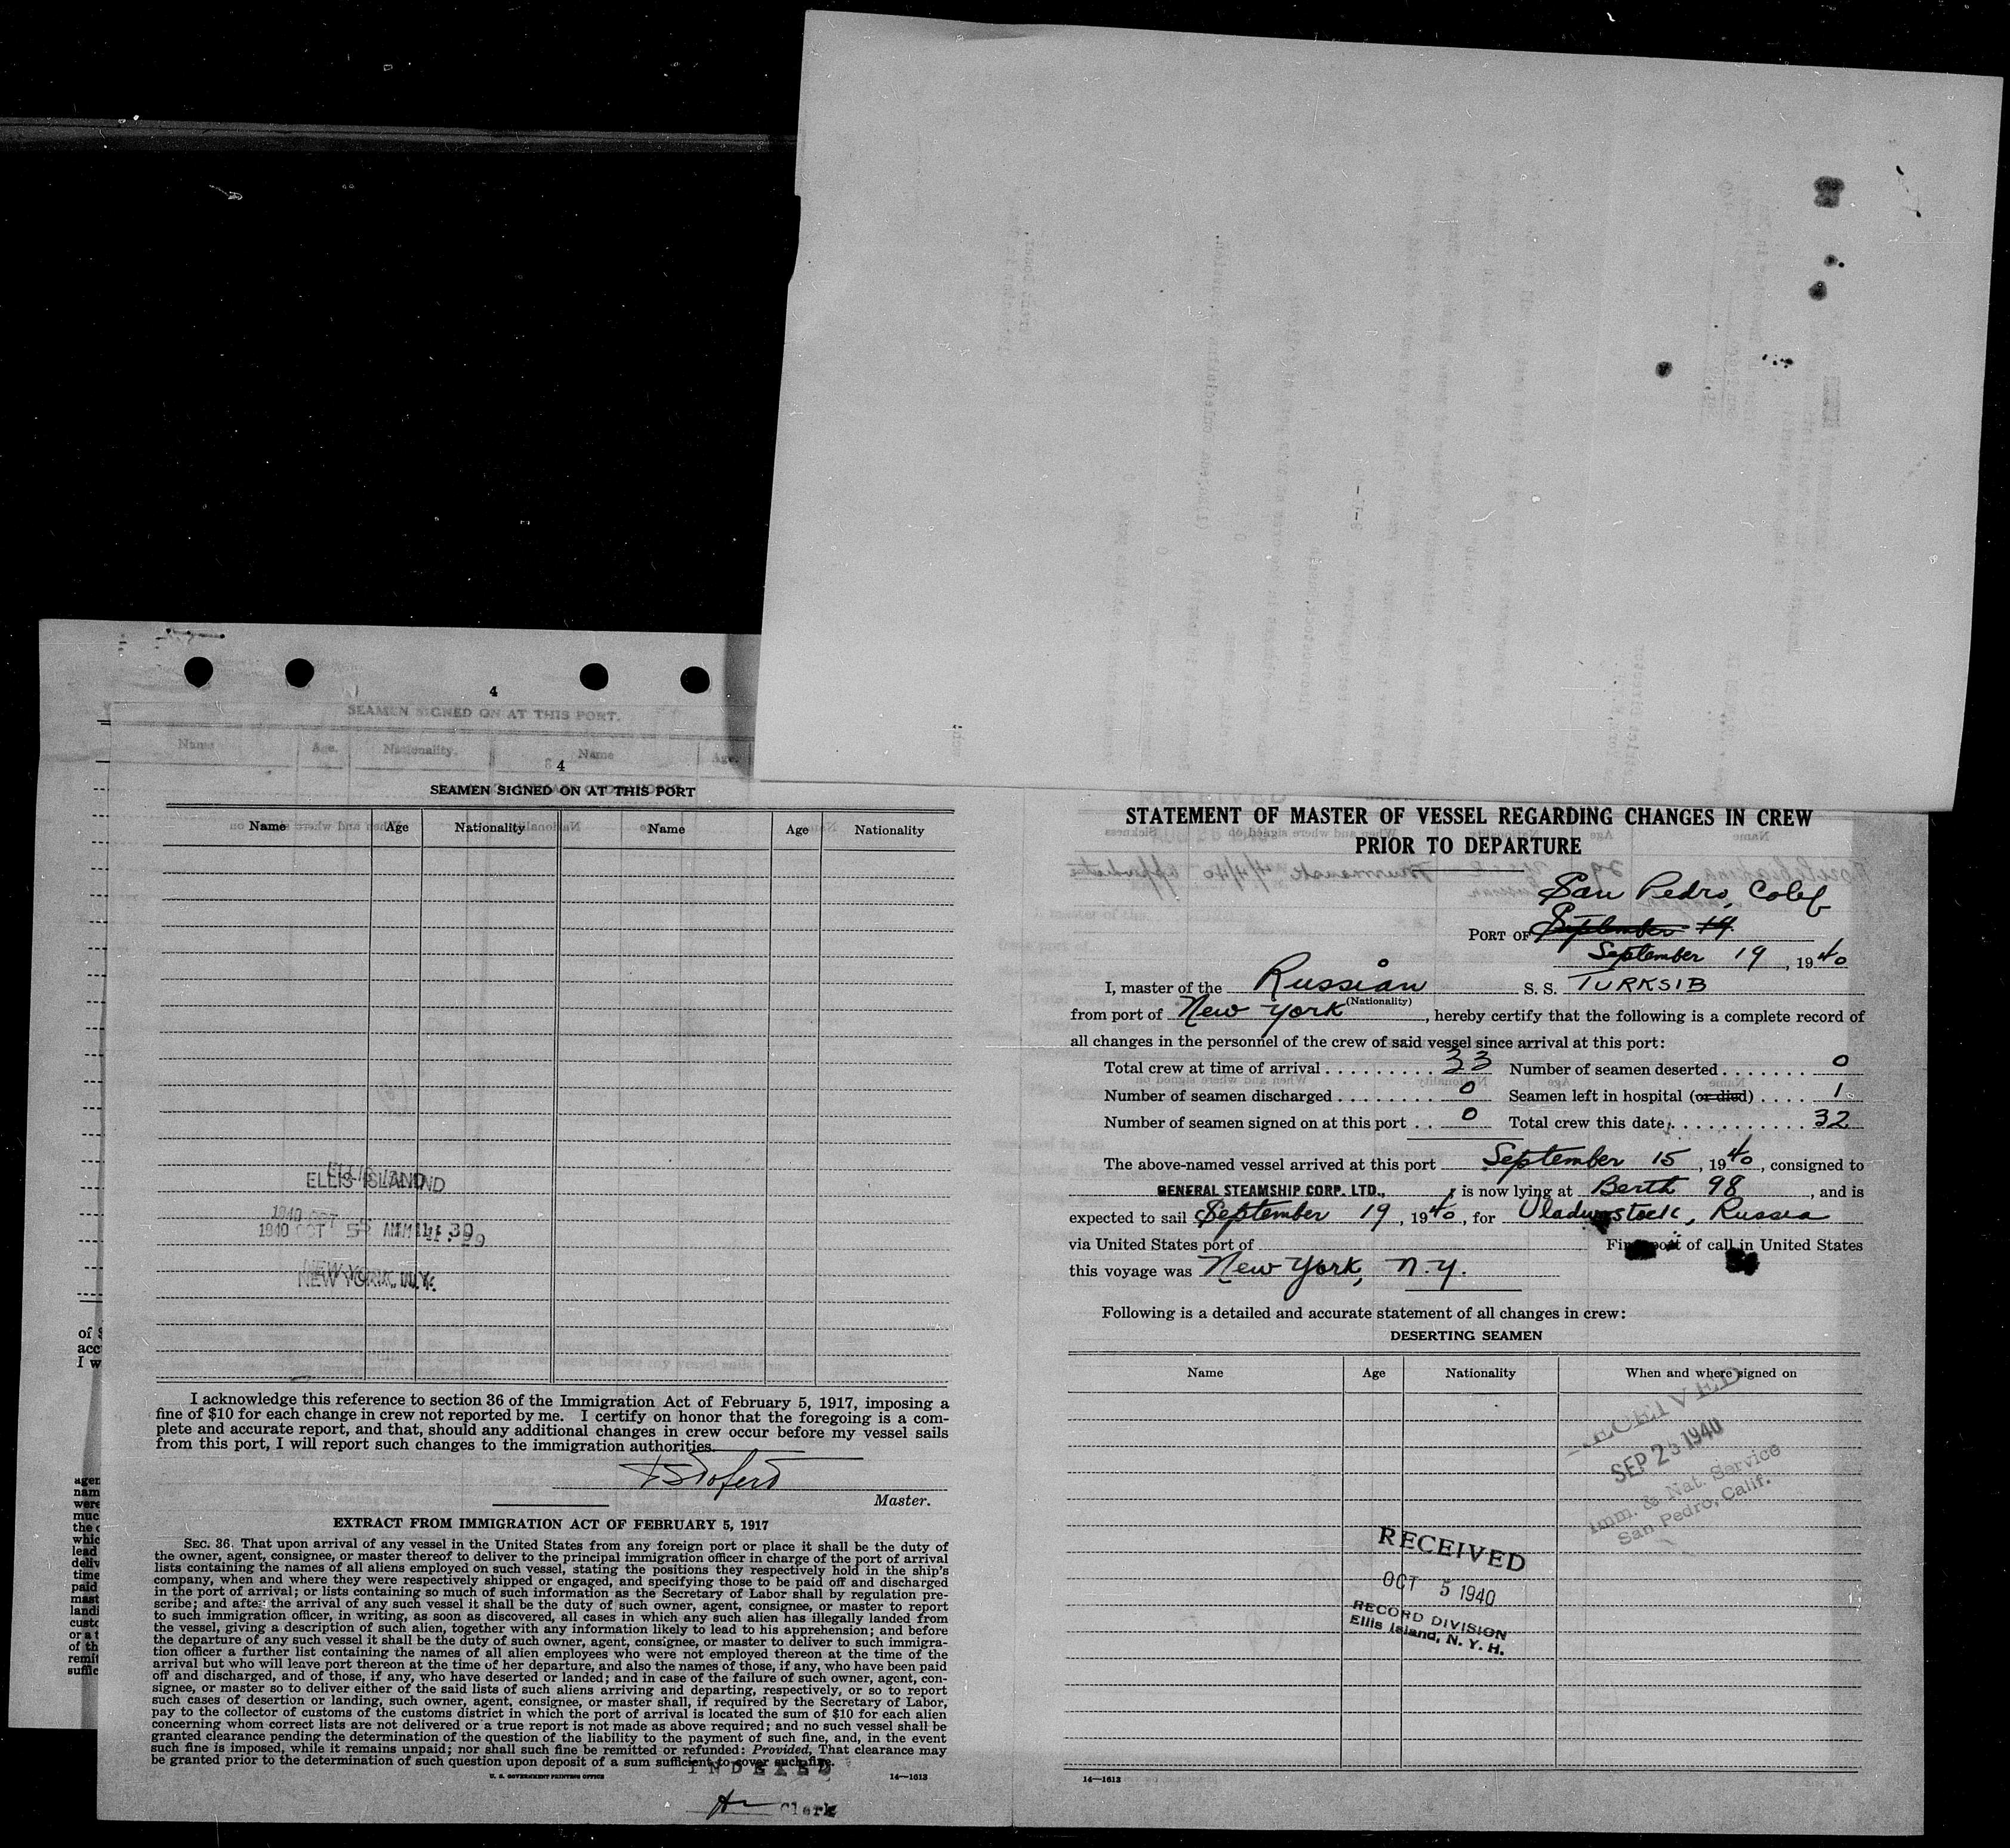 4
SEAMEN SIGNED ON AT THIS PORT.
Name Age. Nationality. Name Age.
4
SEAMEN SIGNED ON AT THIS PORT
Name Age Nationality Name Age Nationality
ELLIS ISLAND
1940 OCT 5 AM 11: 39
NEW YORK, N.Y.
I acknowledge this reference to section 36 of the Immigration Act of February 5, 1917, imposing a
fine of $10 for each change in crew not reported by me. I certify on honor that the foregoing is a com-
plete and accurate report, and that, should any additional changes in crew occur before my vessel sails
from this port, I will report such changes to the immigration authorities.
Master.
EXTRACT FROM IMMIGRATION ACT OF FEBRUARY 5, 1917
SEC. 36. That upon arrival of any vessel in the United States from any foreign port or place it shall be the duty of
the owner, agent, consignee, or master thereof to deliver to the principal immigration officer in charge of the port of arrival
lists containing the names of all aliens employed on such vessel, stating the positions they respectively hold in the ship's
company, when and where they were respectively shipped or engaged, and specifying those to be paid off and discharged
in the port of arrival; or lists containing so much of such information as the Secretary of Labor shall by regulation pre-
scribe; and after the arrival of any such vessel it shall be the duty of such owner, agent, consignee, or master to report
to such immigration officer, in writing, as soon as discovered, all cases in which any such alien has illegally landed from
the vessel, giving a description of such alien, together with any information likely to lead to his apprehension; and before
the departure of any such vessel it shall be the duty of such owner, agent, consignee, or master to deliver to such immigra-
tion officer a further list containing the names of all alien employees who were not employed thereon at the time of the
arrival but who will leave port thereon at the time of her departure, and also the names of those, if any, who have been paid
off and discharged, and of those, if any, who have deserted or landed; and in case of the failure of such owner, agent, con-
signee, or master so to deliver either of the said lists of such aliens arriving and departing, respectively, or so to report
such cases of desertion or landing, such owner, agent, consignee, or master shall, if required by the Secretary of Labor,
pay to the collector of customs of the customs district in which the port of arrival is located the sum of $10 for each alien
concerning whom correct lists are not delivered or a true report is not made as above required; and no such vessel shall be
granted clearance pending the determination of the question of the liability to the payment of such fine, and, in the event
such fine is imposed, while it remains unpaid; nor shall such fine be remitted or refunded: Provided, That clearance may
be granted prior to the determination of such question upon deposit of a sum sufficient to cover such fine.
INDEXED
U. S. GOVERNMENT PRINTING OFFICE 14—1613
Clerk
STATEMENT OF MASTER OF VESSEL REGARDING CHANGES IN CREW
PRIOR TO DEPARTURE
San Pedro, Calif
PORT OF September 19
September 19, 1940
I, master of the Russian S. S. TURKSIB
(Nationality)
from port of New York, hereby certify that the following is a complete record of
all changes in the personnel of the crew of said vessel since arrival at this port:
Total crew at time of arrival . . . . . . . . . . 33 Number of seamen deserted . . . . . . . 0
Number of seamen discharged . . . . . . . . 0 Seamen left in hospital (or died) . . . . 1
Number of seamen signed on at this port . . 0 Total crew this date . . . . . . . . . . . . 32
The above-named vessel arrived at this port September 15, 1940, consigned to
GENERAL STEAMSHIP CORP. LTD., is now lying at Berth 98, and is
expected to sail September 19, 1940, for Vladivostock, Russia
via United States port of First port of call in United States
this voyage was New York, N.Y.
Following is a detailed and accurate statement of all changes in crew:
DESERTING SEAMEN
Name Age Nationality When and where signed on
RECEIVED
SEP 25 1940
Imm. & Nat. Service
San Pedro, Calif.
RECEIVED
OCT 5 1940
RECORD DIVISION
Ellis Island, N. Y. H.
14—1613